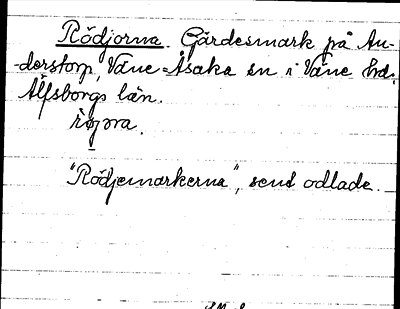 Rödjorna. Gärdesmark på An-
-derstorp, Väne-Åsaka sn i Väne hd.
Älfsborgs län.
røjɔra.
"Rödjemarkerna", sent odlade.